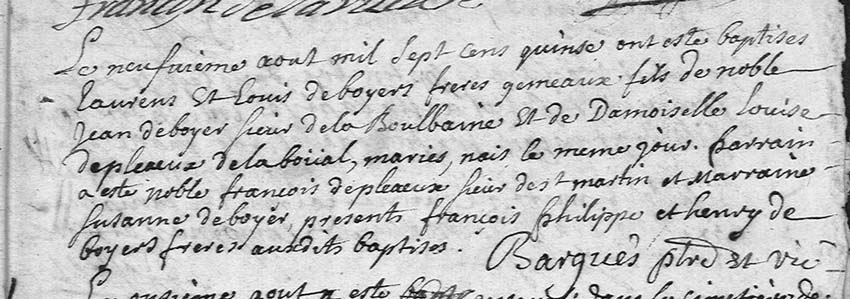 Le neufvieme aout mil sept cens quinse ont esté baptises
Laurens et Louis deboyers freres gemeaux fils de noble
Jean deboyer sieur de la Boulbaine et de Damoiselle Louise
depleaux de la boüal, maries, nais le meme jour. parrain
a este noble françois depleaux sieur de st martin et Marraine
Susanne deboyer, presents françois philippe et henry de
boyers freres auxdits baptises.
Barques ptre et vic
aout a este